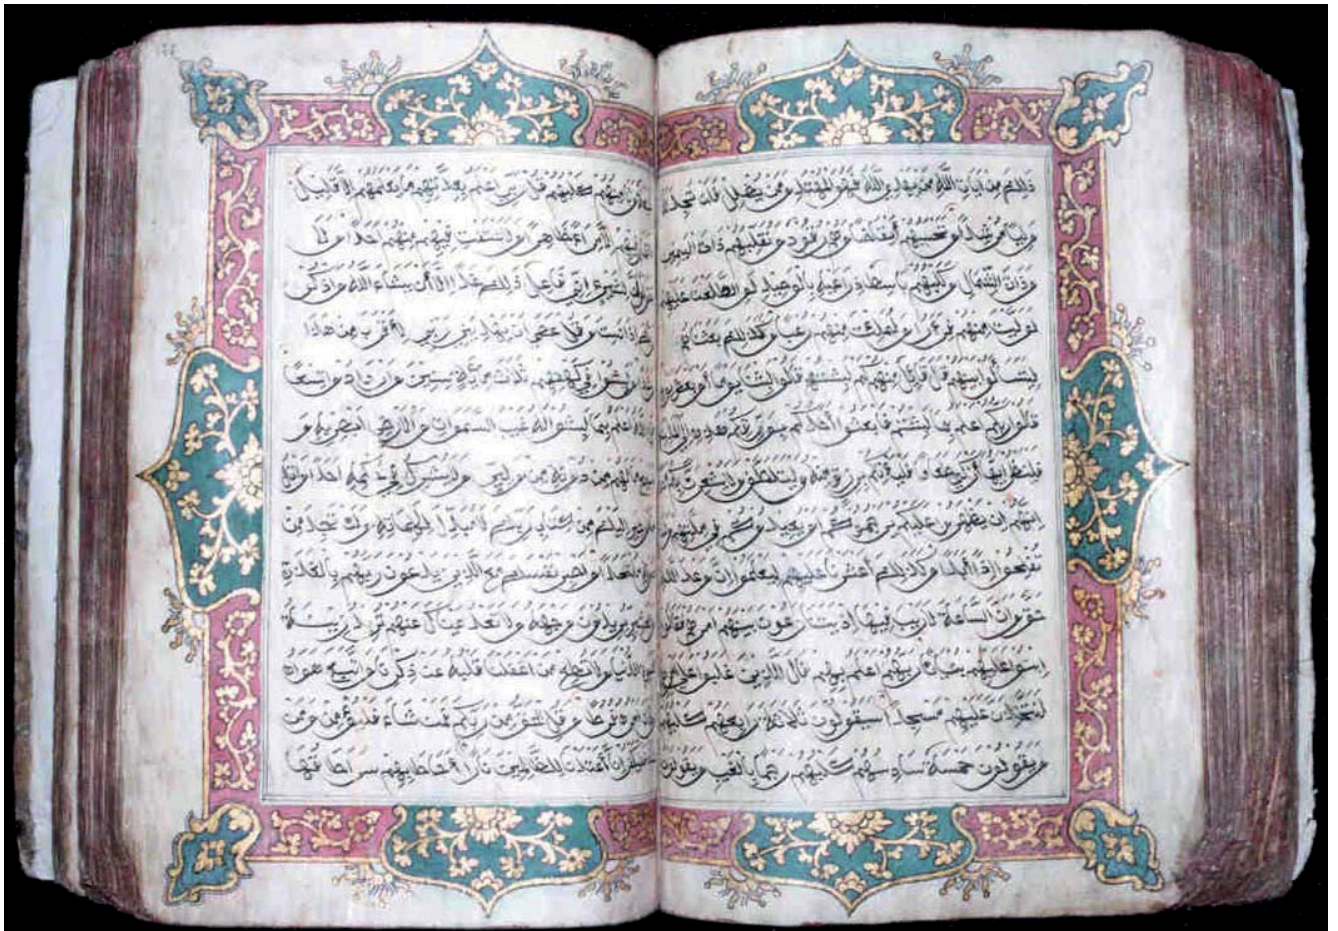 ذلك من ايات الله من يهد الله فهو المهتد ومن يضلل فلن تجد له
وليا مرشدا وتحسبهم أيقاظا وهم رقود ونقلبهم ذات اليمين
وذات الشمال وكلبهم باسط ذراعيه بالوصيد لو اطلعت عليهم
لوليت منهم فرارا ولملئت منهم رعبا وكذلك بعثناهم
ليتساءلوا بينهم قال قائل منهم كم لبثتم قالوا لبثنا يوما أو بعض
قالوا ربكم أعلم بما لبثتم فابعثوا أحدكم بورقكم هذه إلى
فلينظر أيها أزكى فليأتكم برزق منه وليتلطف ولا يشعرن بكم
إنهم إن يظهروا عليكم يرجموكم أو يعيدوكم في ملتهم
تفلحوا إذا أبدا وكذلك أعثرنا عليهم ليعلموا أن وعد الله
حق وأن الساعة لا ريب فيها إذ يتنازعون بينهم أمرهم فقالوا
ابنوا عليهم بنيانا ربهم أعلم بهم قال الذين غلبوا على
لنتخذن عليهم مسجدا سيقولون ثلاثة رابعهم كلبهم
ويقولون خمسة سادسهم كلبهم رجما بالغيب ويقولون
وثامنهم كلبهم قل ربي أعلم بعدتهم ما يعلمهم إلا قليل
فيهم إلا مراء ظاهرا ولا تستفت فيهم منهم أحدا ولا
لشيء إني فاعل ذلك غدا إلا أن يشاء الله واذكر
إذا نسيت وقل عسى أن يهدين ربي لأقرب من هذا
ولبثوا في كهفهم ثلاث مائة سنين وازدادوا تسعا
الله أعلم بما لبثوا له غيب السموات والأرض أبصر به و
ما لهم من دونه من ولي ولا يشرك في حكمه أحدا واتل
إليك من كتاب ربك لا مبدل لكلماته ولن تجد من
ملتحدا واصبر نفسك مع الذين يدعون ربهم بالغداة
يريدون وجهه ولا تعد عيناك عنهم تريد زينة
الدنيا ولا تطع من أغفلنا قلبه عن ذكرنا واتبع هواه
أمره فرطا وقل الحق من ربكم فمن شاء فليؤمن ومن
إنا أعتدنا للظالمين نارا أحاط بهم سرادقها